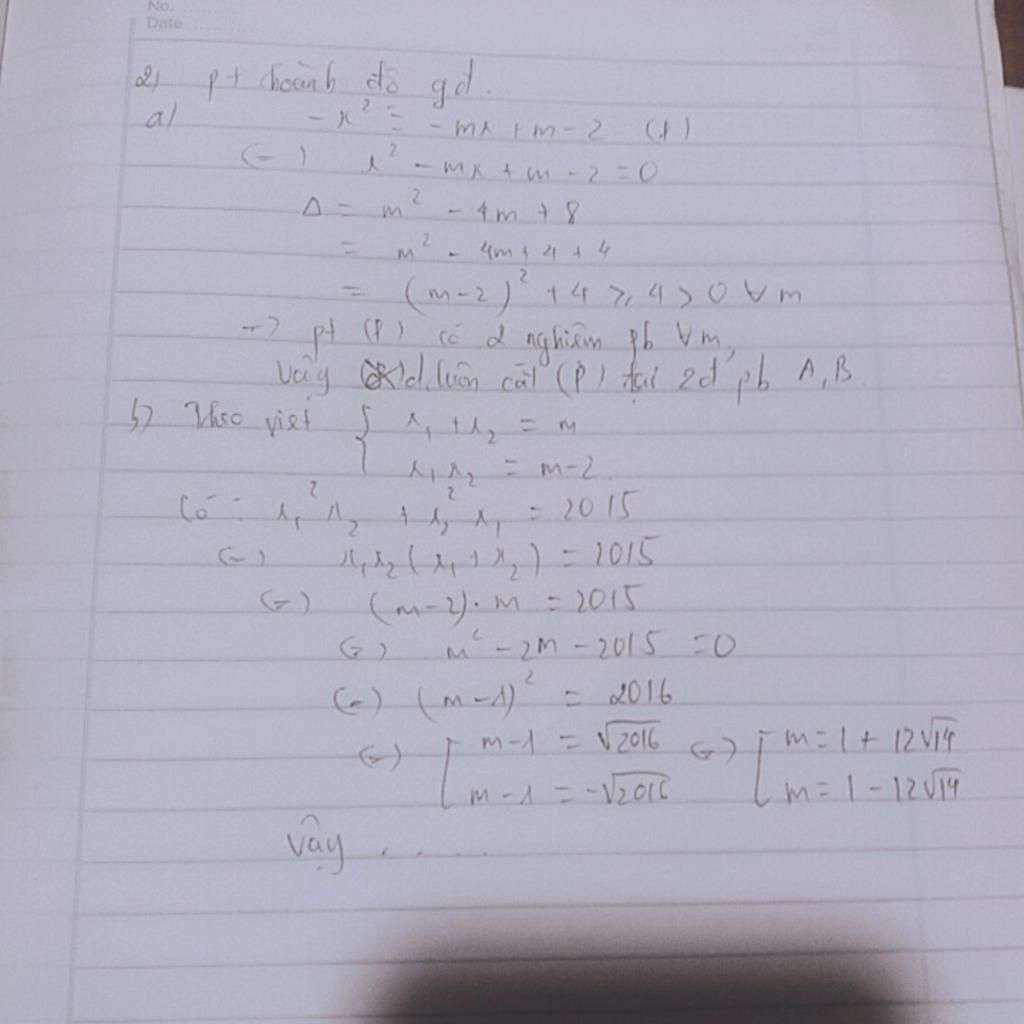 No. ........
Date ........
2) pt hoành độ gđ.
a) -x² = -mx + m - 2 (1)
(=) x² - mx + m - 2 = 0
Δ = m² - 4m + 8
= m² - 4m + 4 + 4
= (m-2)² + 4 ≥ 4 > 0 ∀m
-> pt (1) có 2 nghiệm pb ∀m,
Vậy d luôn cắt (P) tại 2đ pb A, B
b) Theo viet { x₁ + x₂ = m
x₁x₂ = m-2.
Có: x₁²x₂ + x₂²x₁ = 2015
(=) x₁x₂(x₁ + x₂) = 2015
(=) (m-2).m = 2015
(=) m² - 2m - 2015 = 0
(=) (m-1)² = 2016
(=) [ m-1 = √2016 (=) [ m = 1 + 12√14
m-1 = -√2016 m = 1 - 12√14
Vậy . . . . .